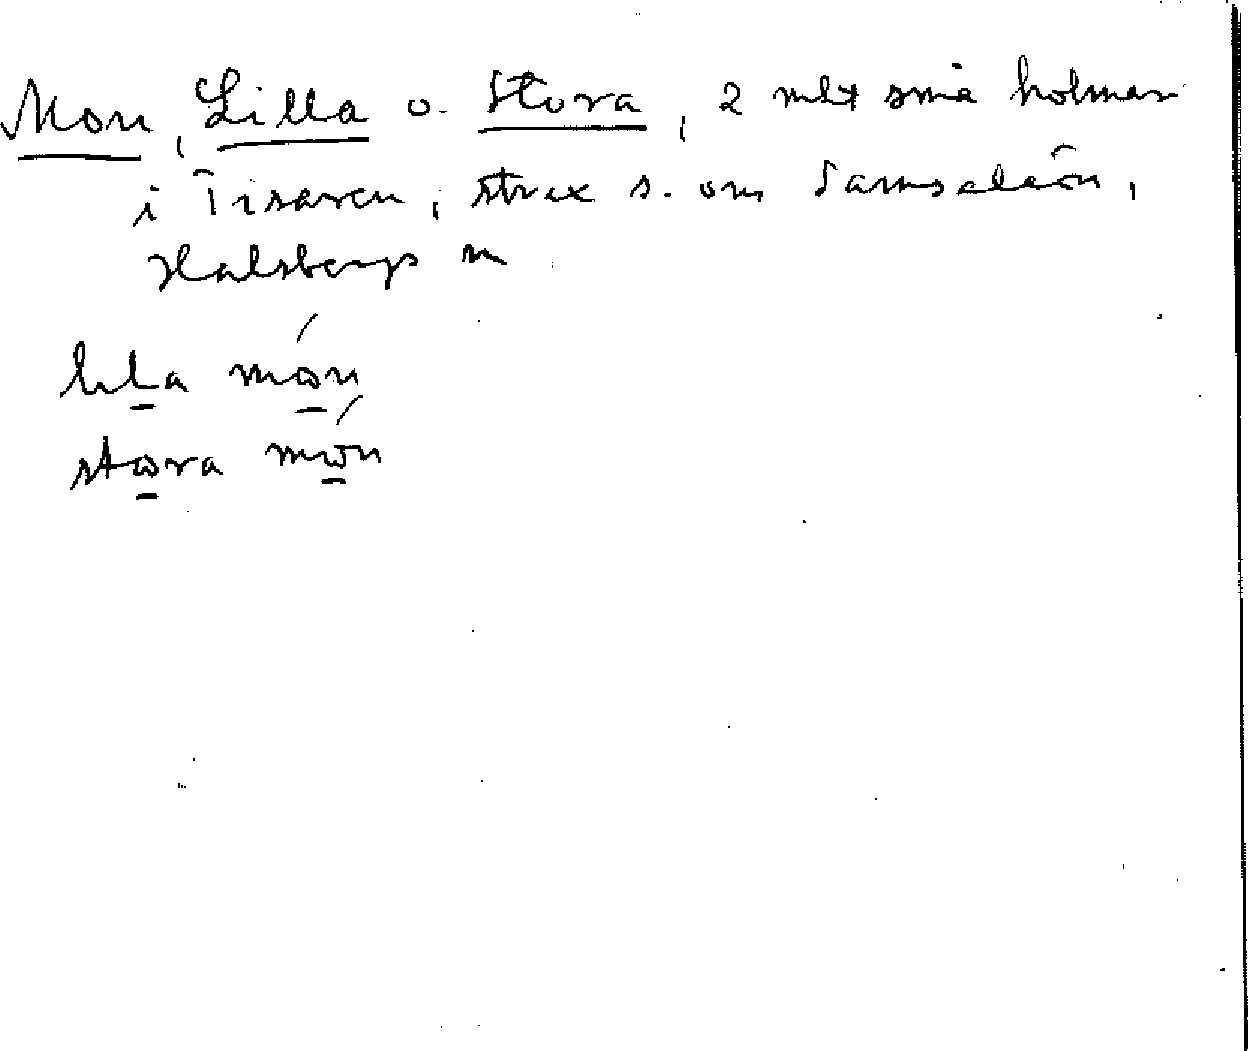 Mon, Lilla o. Stora, 2 mkt små holmar
i Tisaren, strax s. om
Hallsbergs
lila món
stora món